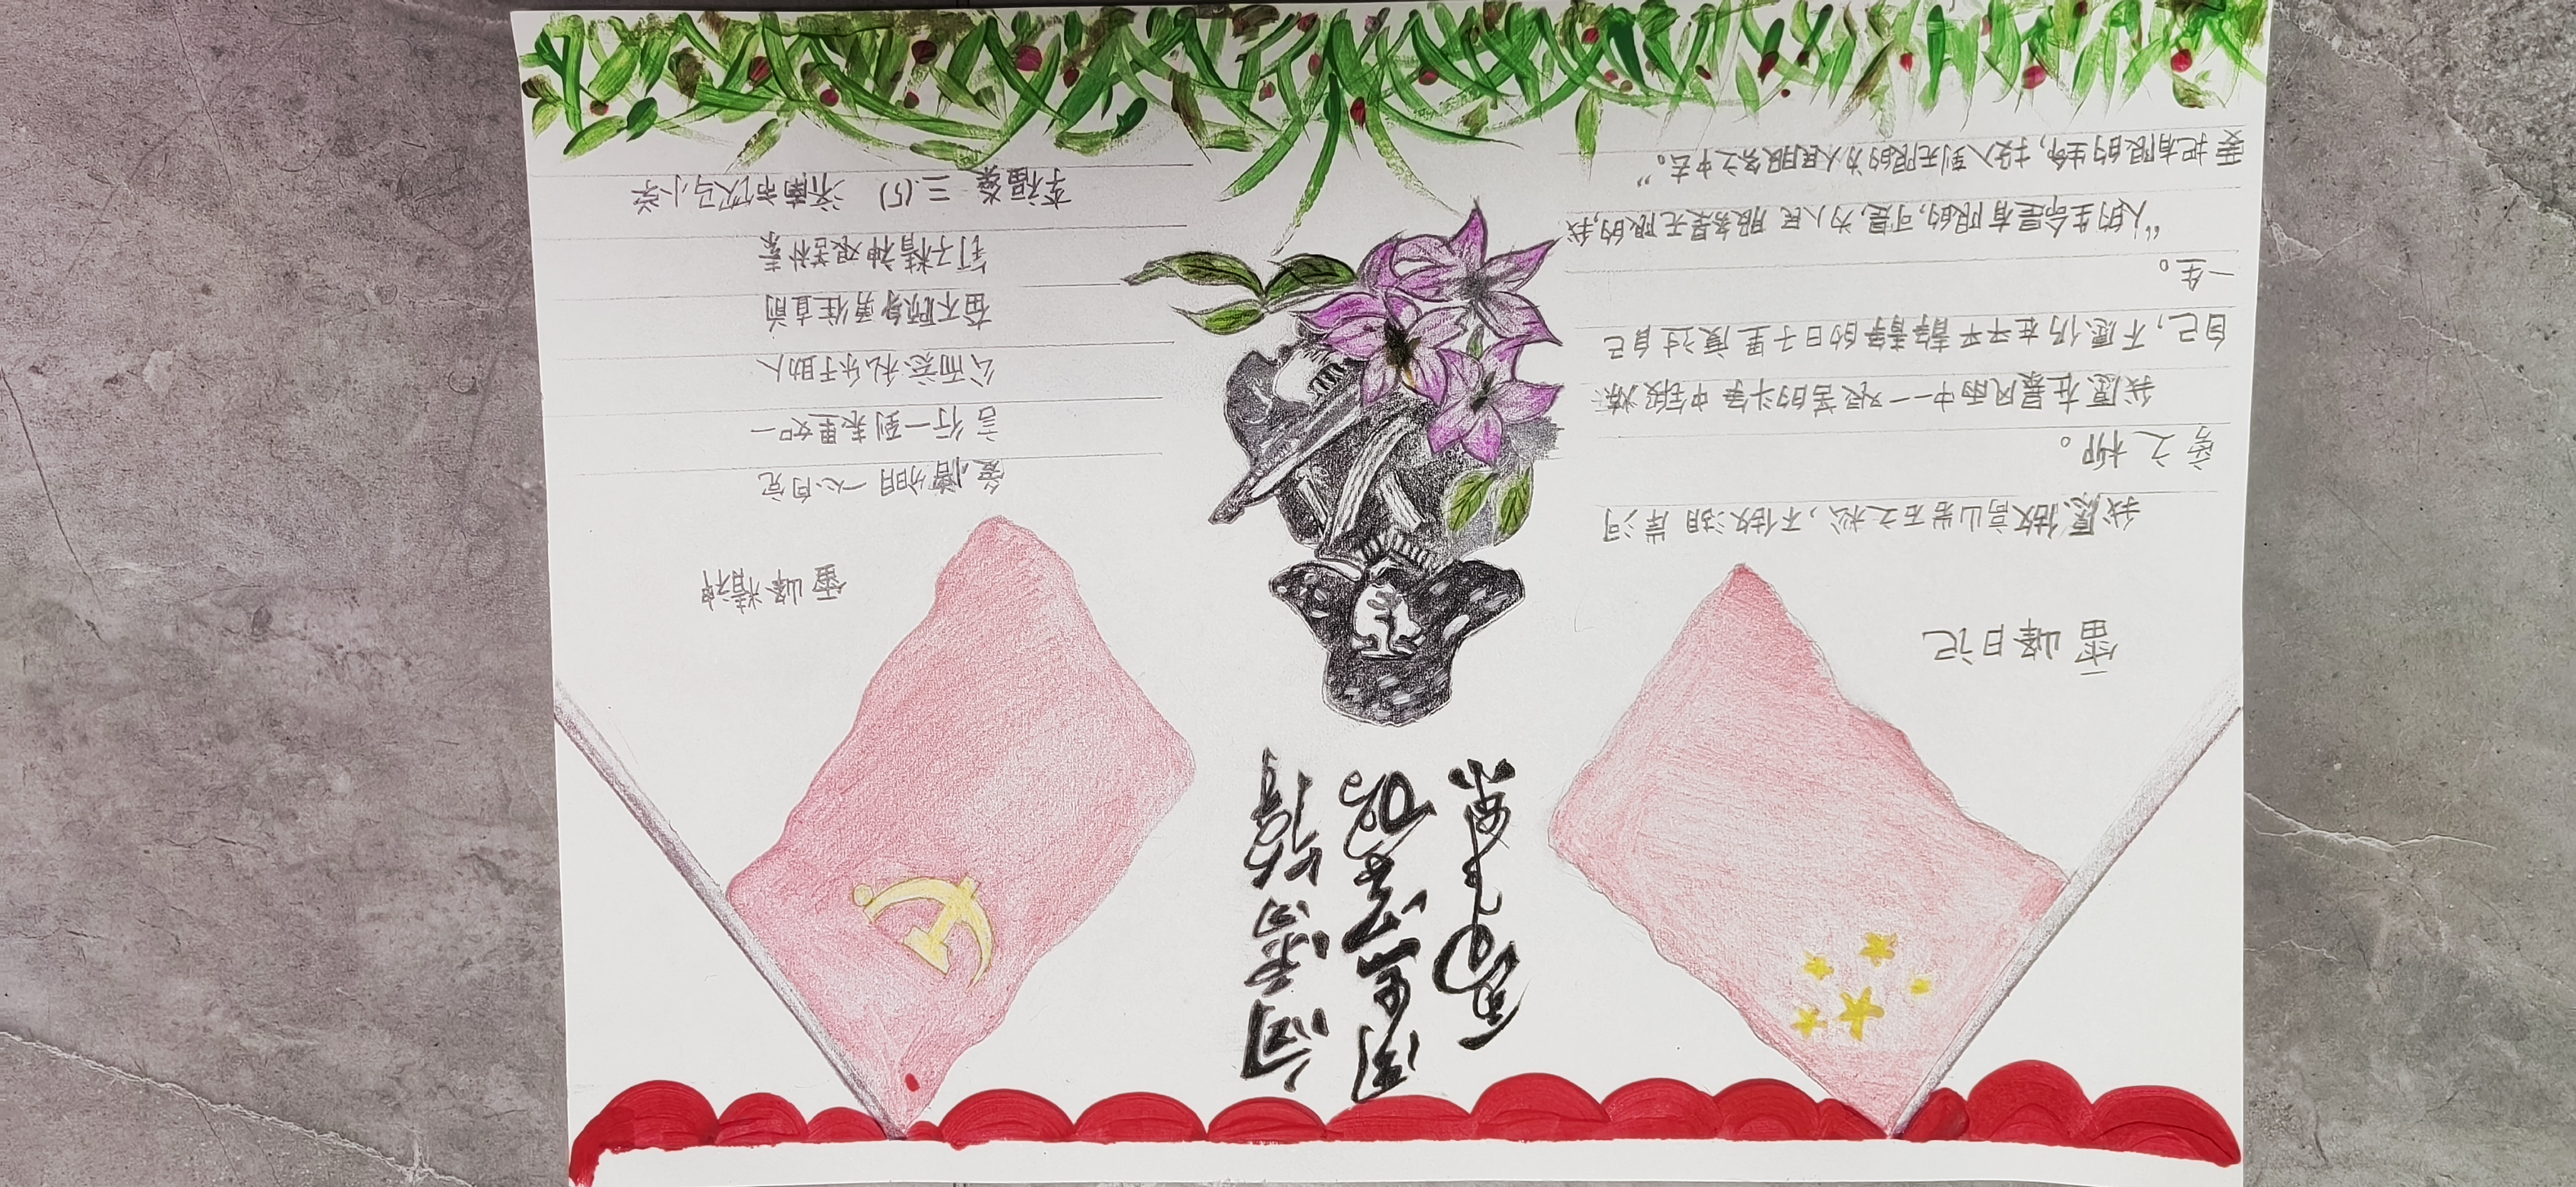 向雷锋
同志学习
毛泽东
雷峰日记
我愿做高山岩石之松，不做湖岸河
旁之柳。
我愿在暴风雨中——艰苦的斗争中锻炼
自己，不愿仍在平平静静的日子里度过自己
一生。
“人的生命是有限的，可是，为人民服务是无限的，我
要把有限的生命，投入到无限的为人民服务之中去。”
雷峰精神
爱憎分明一心向党
言行一到表里如一
公而忘私乐于助人
奋不顾身勇住直前
钉子精神艰苦朴素
李福燊 三.(5) 济南市饮马小学